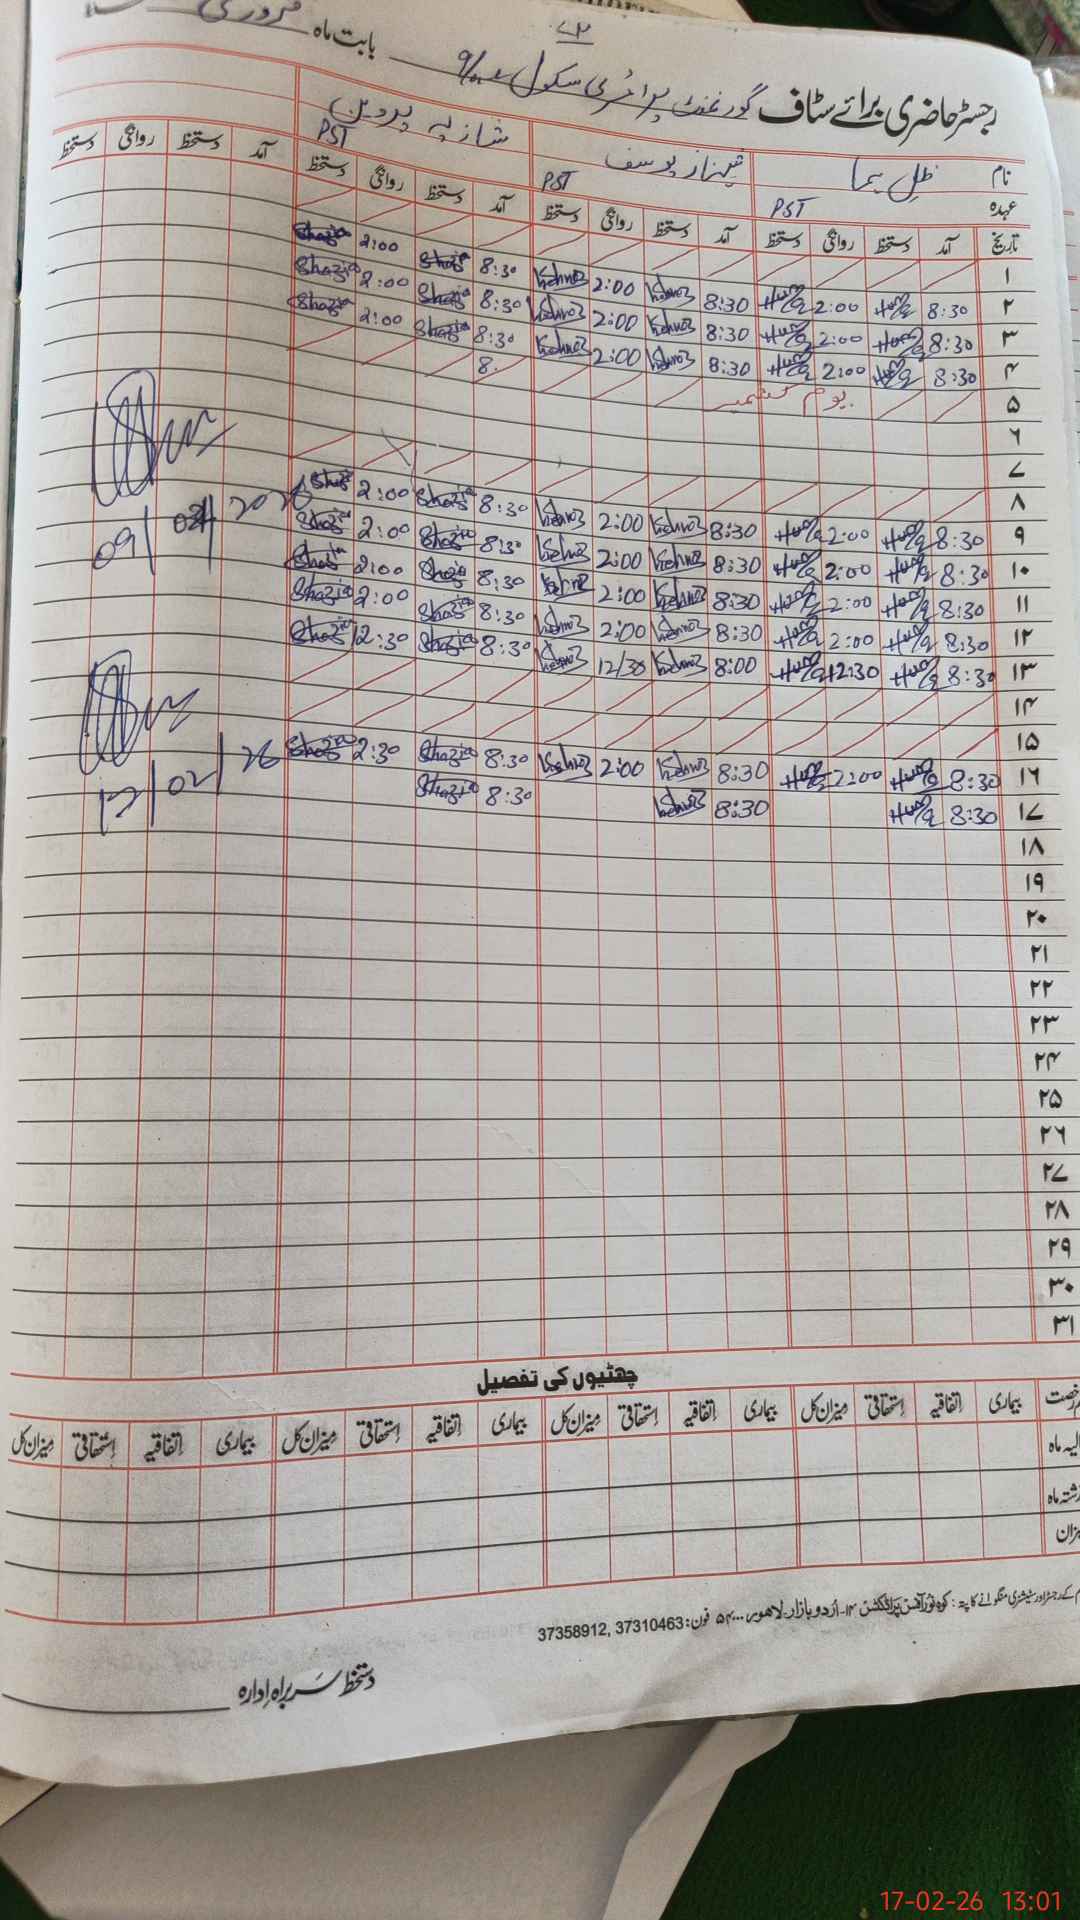 رجسٹر حاضری برائے سٹاف گورنمنٹ پرائمری سکول بابت ماہ فروری
نام ظل ہما شہناز یوسف شازیہ پروین
عہدہ PST PST PST
تاریخ آمد دستخط روانگی دستخط آمد دستخط روانگی دستخط آمد دستخط روانگی دستخط آمد دستخط روانگی دستخط
۱
۲ 8:30 Huma 2:00 Huma 8:30 2:00 8:30 Shazia 2:00 Shazia
۳ 8:30 Huma 2:00 Huma 8:30 2:00 8:30 Shazia 2:00 Shazia
۴ 8:30 Huma 2:00 Huma 8:30 2:00 8:30 Shazia 2:00 Shazia
۵ یوم کشمیر 8.
۶
۷
۸
۹ 8:30 Huma 2:00 Huma 8:30 2:00 8:30 Shazia 2:00 Shazia
09/02/2026
۱۰ 8:30 Huma 2:00 Huma 8:30 2:00 8:30 Shazia 2:00 Shazia
۱۱ 8:30 Huma 2:00 Huma 8:30 2:00 8:30 Shazia 2:00 Shazia
۱۲ 8:30 Huma 2:00 Huma 8:30 2:00 8:30 Shazia 2:00 Shazia
۱۳ 8:30 Huma 12:30 Huma 8:00 12/30 8:30 Shazia 12:30 Shazia
۱۴
۱۵
۱۶ 8:30 Huma 2:00 Huma 8:30 2:00 8:30 Shazia 2:30 Shazia
۱۷ 8:30 Huma 8:30 8:30 Shazia
۱۸
۱۹
۲۰
۲۱
۲۲
۲۳
۲۴
۲۵
۲۶
۲۷
۲۸
۲۹
۳۰
۳۱
چھٹیوں کی تفصیل
بیماری اتفاقیہ استحقاقی میزان کل بیماری اتفاقیہ استحقاقی میزان کل بیماری اتفاقیہ استحقاقی میزان کل بیماری اتفاقیہ استحقاقی میزان کل
کوہ نور آفس پراڈکٹس ۱۴- اُردو بازار لاہور ۵۴۰۰۰ فون: 37310463, 37358912
دستخط سربراہ ادارہ
17-02-26 13:01